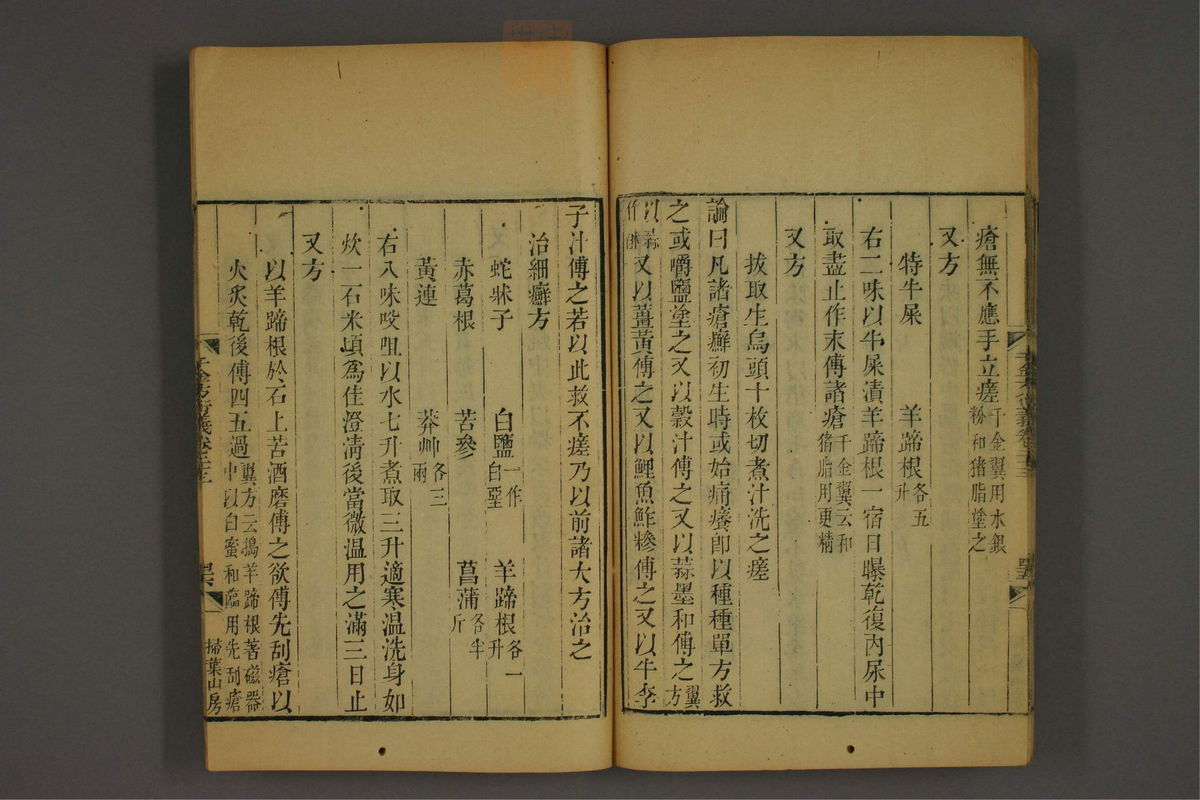 瘡無不應手立瘥千金翼用水銀粉和猪脂塗之
又方
特牛屎 羊蹄根各五升
右二味以牛屎漬羊蹄根一宿日曝乾復内尿中
取盡止作末傅諸瘡千金翼云和猪脂用更精
又方
拔取生烏頭十枚切煮汁洗之瘥
論曰凡諸瘡癬初生時或始痛癢卽以種種單方救
之或嚼鹽塗之又以穀汁傅之又以蒜墨和傅之翼方
以蒜作酥又以薑黃傅之又以鯉魚鮓糝傅之又以牛李
子汁傅之若以此救不瘥乃以前諸大方治之
治細癬方
蛇牀子 白鹽一作白堊 羊蹄根各一升
赤葛根 苦參 菖蒲各半斤
黃連 莽艸各三兩
右八味㕮咀以水七升煮取三升適寒温洗身如
炊一石米頃爲佳澄清後當微温用之滿三日止
又方
以羊蹄根於石上苦酒磨傅之欲傅先刮瘡以
火炙乾後傅四五過翼方云搗羊蹄根著磁器中以白蜜和臨用先刮瘡
掃葉山房